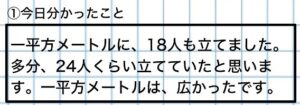 ①今日分かったこと
一平方メートルに、18人も立てました。
多分、24人くらい立てていたと思いま
す。一平方メートルは、広かったです。